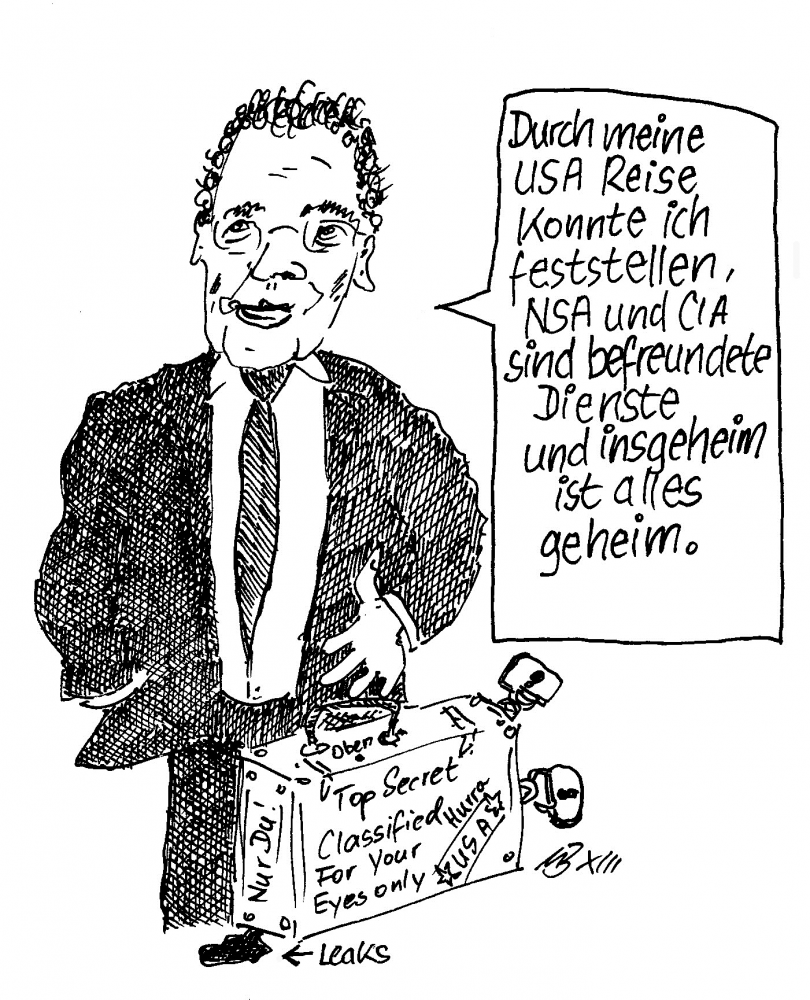 Durch meine
USA Reise
konnte ich
feststellen,
NSA und CIA
sind befreundete
Dienste
und insgeheim
ist alles
geheim.
Oben
Top Secret
Classified
For Your
Eyes only
Hurra
USA
Nur Du!
XIII
← Leaks